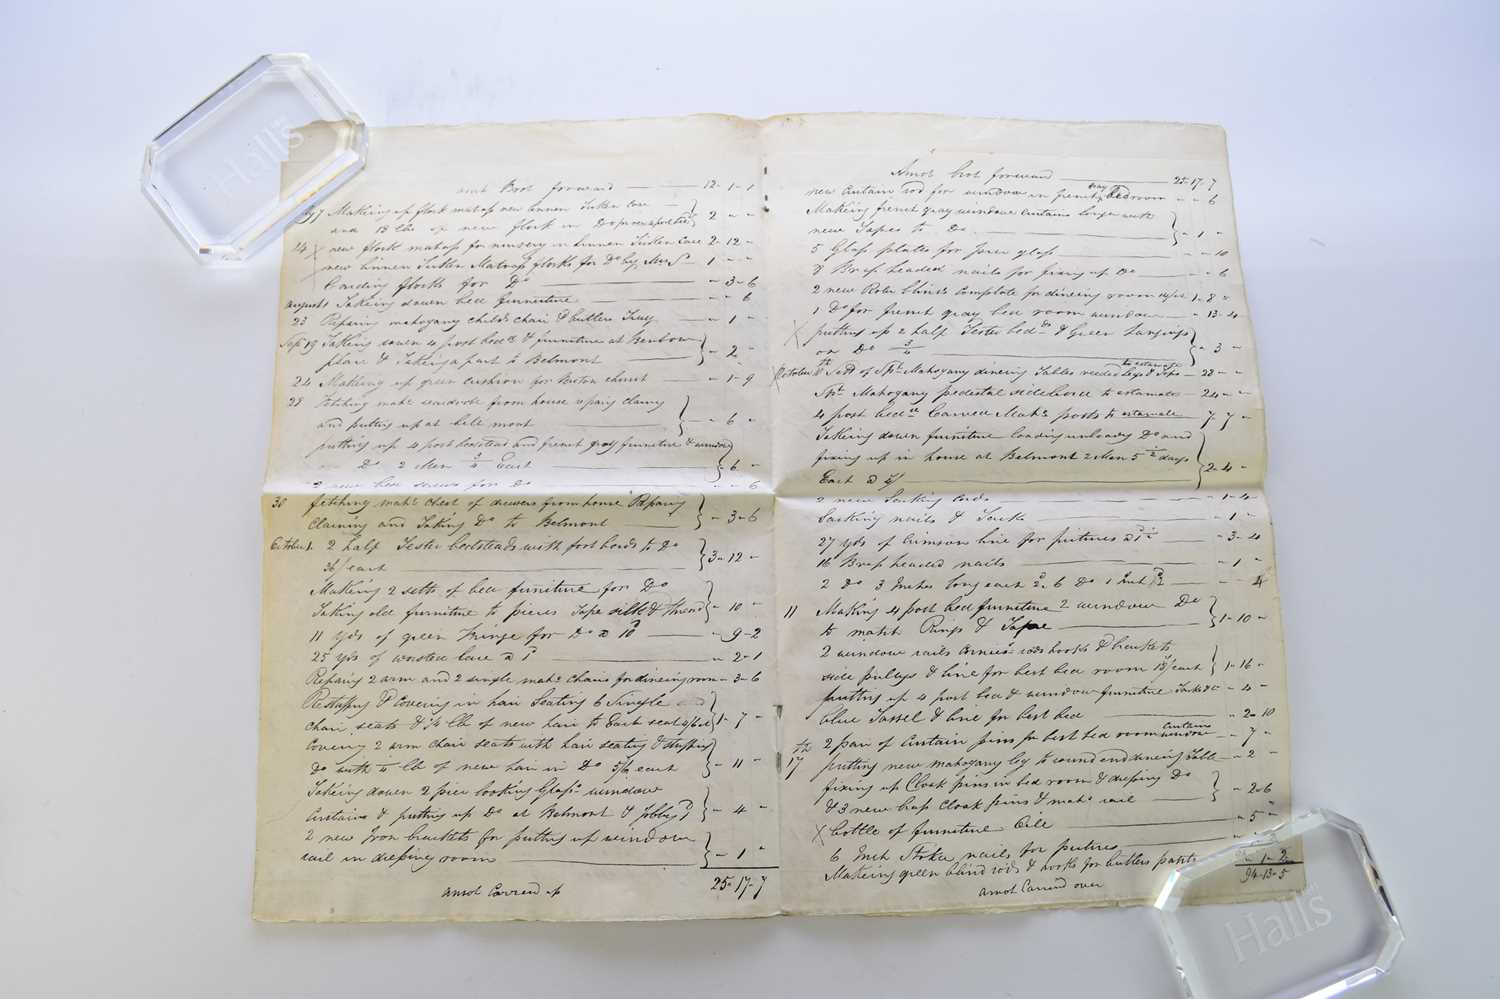 Halls
amt Brot forward 12 - 1 - 1
7 Making up flock matrass new linnen Ticken Case
and 18 lbs of new flock in Do 2 - -
24 new flock matrass for nursery in Linnen Ticken Case 2 - 12 -
new linnen Ticken Matrass flocks for Do by Mrs 1 - -
Carding flocks for Do - 3 - 6
August Taking down bed furniture - - 6
23 Repairing mahogany childs chair & butlers Tray - 1 -
Sep 19 Taking down 4 post bedsd & furniture at Benbow
place & Taking apart to Belmont - 2 -
24 Making up green cushion for church - 1 - 9
28 Fetching mahy wardrobe from house repairg claing
and putting up at bellmont - 6 -
putting up 4 post bedstead and french gray furniture & window
Do 2 Men 3/4 Each - 6 -
2 new bed screws for Do - - 6
30 fetching mahy chest of drawers from house Repairing
Claining and Taking Do to Belmont - 3 - 6
October 1 2 half Tester bedsteads with foot bords to Do
36/ each 3 - 12 -
Making 2 setts of bed furniture for Do
Taking old furniture to pieces Tape silk & thread - 10 -
11 yds of green Fringe for Do a 10d - 9 - 2
25 yds of worsted lace a 1d - 2 - 1
Repairing 2 arm and 2 single mahy chairs for dineing room - 3 - 6
Restuffing & Covering in hair Seating 6 Single
chair seats & 1/4 lb of new hair to Each seat 4/6 d 1 - 7 -
Covering 2 arm chair seats with hair seating & stuffing
Do with 1/4 lb of new hair in Do 5/6 each - 11 -
Takeing down 2 pier looking Glass window
Curtains & putting up Do at Belmont & Jobbing - 4 -
2 new Iron brackets for putting up window
rail in dressing room - 1 -
amot Carried up 25 - 17 - 7
Amot brot forward 25 - 17 - 7
new Curtain rod for window in french gray Bedroom - - 6
Making french gray window Curtains larger with
new Tapes to Do - 1 -
5 Glass plates for pier glass - - 10
8 Brass headed nails for fixing up Do - - 6
2 new Roler blinds Complate for dineing room 14/ 1 - 8 -
1 Do for french gray bed room window - 13 - 4
putting up 2 half Tester bedsds & Green hangings
on Do 3/4 - 3 -
October 8th Sett of Spsh Mahogany dineing Tables reeded legs & Tops to estamate 28 - -
Spsh Mahogany pedestal sideboard to estamate 24 - -
4 post bedsd Carved Mahy posts to estamate 7 - 7 -
Taking down furniture loading unloading Do and
fixing up in house at Belmont 2 Men 5 1/2 days
Each a 4/ 2 - 4 -
2 new Sacking Cords - 1 - 4
Sacking nails & Tacks - 1 -
27 yds of Crimson line for pictures a 1 1/2 - 3 - 4
16 Brass headed nails - 1 -
2 Do 3 Inches long each 2d 6 Do 1 Inch - - 4
11 Making 4 post bed furniture 2 window Do
to match Rings & Tape 1 - 10 -
2 window rails Cornices rods hooks & brackets
side pulleys & line for best bed room 18/ each 1 - 16 -
putting up 4 post bed & window furniture Tacks &c - 4 -
blue Tassel & line for best bed - 2 - 10
2 pair of Curtain pins for best bed room window Curtains - 7 -
17th putting new mahogany leg to round end dineing Table - 2 -
fixing up Cloak pins in bed room & dressing Do
& 3 new brass Cloak pins & mahy rail - 2 - 6
bottle of furniture Oile - 5 -
6 Inch Stokea nails for pictures
Making green blind rods & hooks for butlers pantry - 1 - 2
94 - 13 - 5
amot Carried over
Halls